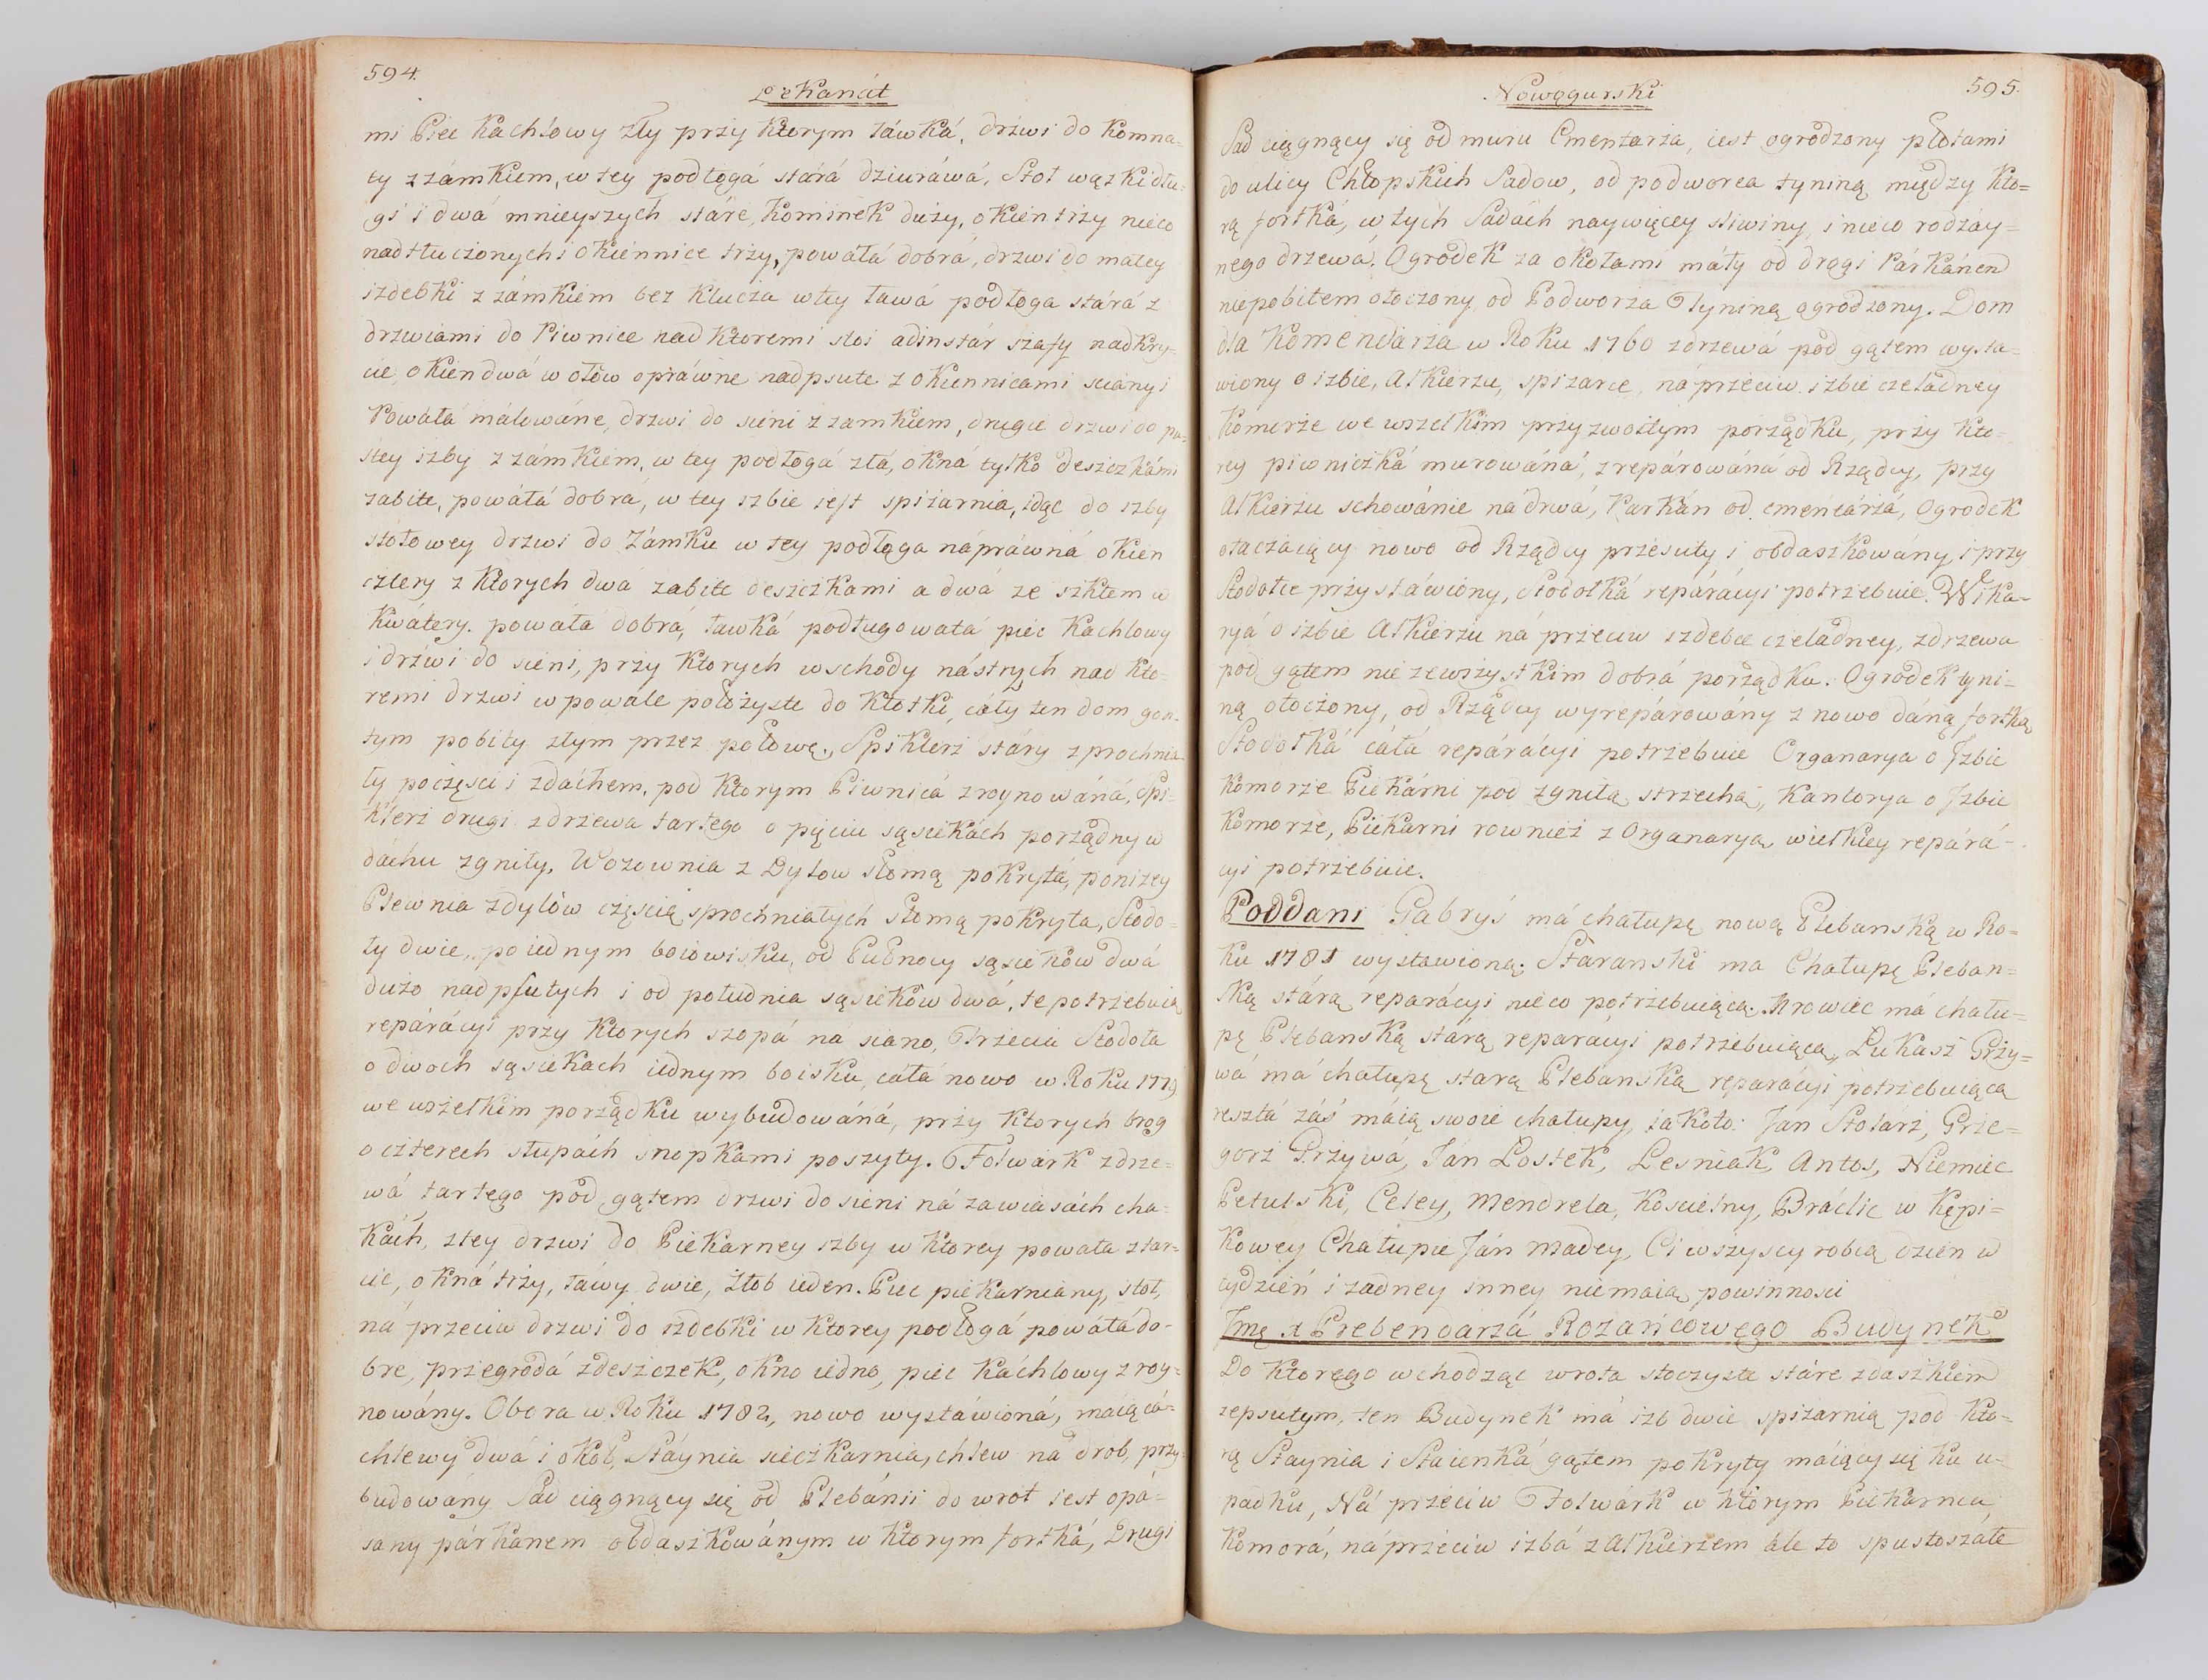 594.
Dekanát
mi Piec kachlowy zły przy ktorym łáwká, drzwi do komna-
ty z zámkiem, w tey podłogá stárá dziuráwá, Stoł wązki dłu-
gi i dwá mnieyszych stáre, kominek duży, okien trzy nieco
nadtłuczonych i okiennice trzy, powáłá dobrá, drzwi do małey
izdebki z zámkiem bez klucza w tey ławá podłoga stárá z
drzwiami do Piwnice nad ktoremi stoi adinstár szafy nadkry-
cie, okien dwá w ołow opráwne nadpsute z okiennicami sciany i
Powáłá málowáne, drzwi do sieni z zamkiem, drugie drzwi do pu-
stey izby z zámkiem, w tey podłogá złá, okná tylko deszczkámi
zabite, powáłá dobrá, w tey izbie iest spiżarnia, idąc do izby
stołowey drzwi do Zámku w tey podłoga nápráwná okien
cztery z ktorych dwá zabite deszczkami a dwá ze szkłem w
kwátery. powáła dobrá, ławká podługowatá piec kachlowy
i drzwi do sieni, przy ktorych wschody ná strych nad kto-
remi drzwi w powale położyste do kłotki, cáły ten dom gon-
tym pobity złym przez połowę, Spiklerz stáry zprochnia-
ły poczęsci i zdáchem, pod ktorym Piwnicá zroynowáná, Spi-
klerz drugi z drzewa tartego o pięciu sąsiekách porządny w
dáchu zgniły, Wozownia z Dylow słomą pokrytá, poniżey
Plewnia z dylów częscią sprochniałych słomą pokryta, Stodo-
ły dwie, po iednym boiowisku, od Pułnocy sąsiekow dwá
dużo nadpsutych i od południa sąsieków dwá, te potrzebuią
reparácyi przy ktorych szopá ná siano, Trzecia Stodoła
o dwoch sąsiekach iednym boisku, cáłá nowo w Roku 1779
we wszelkim porządku wybudowáná, przy ktorych brog
o czterech słupách snopkami poszyty. Folwark z drze-
wá tartego pod gątem drzwi do sieni ná zawiasách cha-
kách, z tey drzwi do Piekarney izby w ktorey powała z tar-
cic, okná trzy, łáwy dwie, żłob ieden. Piec piekarniany, stoł,
ná przeciw drzwi do izdebki w ktorey podłogá powáłá do-
bre, przegrodá z deszczek, okno iedno, piec kachlowy zroy-
nowány. Obora w Roku 1782, nowo wystáwioná, maiącá
chlewy dwá i okoł, Stáynia sieczkarnia, chlew na drob, przy-
budowány Sad ciągnący się od Plebánii do wrot iest opá-
sany párkanem obdaszkowánym w ktorym fortká, Drugi
Nowogurski
595.
Sad ciągnący się od muru Cmentarza, iest ogrodzony płotami
do ulicy Chłopskich Sadow, od podworca tyniną między kto-
rą fortká, w tych Sadách naywięcey sliwiny i nieco rodzay-
nego drzewá. Ogrodek za okołami máły od drogi Párkánem
niepobitem otoczony od Podworza Tyniną ogrodzony. Dom
dla Komendarza w Roku 1760 z drzewá pod gątem wysta-
wiony o izbie, Alkierzu, spizarce, náprzeciw izbie czeladney
komorze we wszelkim przyzwoitym porządku, przy kto-
rey piwniczká murowáná, zrepárowáná od Rządcy, przy
Alkierzu schowánie ná drwá, Parkán od cmentárzá, Ogrodek
otaczaiący nowo od Rządcy przesuty i obdaszkowány i przy
Stodołce przystáwiony, Stodołká reparácyi potrzebuie. Wika-
ryá o izbie Alkierzu ná przeciw izdebce czeladney, z drzewa
pod gątem nie zewszystkim dobrá porządku. Ogrodek tyni-
ną otoczony, od Rządcy wyrepárowány z nowo dáną fortką
Stodołká cáłá reparácyi potrzebuie Organarya o Jzbie
komorze Piekárni pod zgniłą strzechą, Kantorya o Jzbie
komorze, Piekarni rownież z Organaryą wielkiey repárá-
cyi potrzebuie.
Poddani Gabryś má chałupę nową Plebanską w Ro-
ku 1781 wystawioną. Staranski ma Chałupę Pleban-
ską stárą reparácyi nieco potrzebuiącą. Krowiec má chału-
pę Plebanską stárą reparácyi potrzebuiącą, Łukasz Przy-
wá má chałupę starą Plebanską reparácyi potrzebuiącą
resztá záś máią swoie chałupy, iako to: Jan Stolarz, Grze-
gorz Przywá, Ján Lostek, Lesniak, Antos, Niemiec
Petulski, Celey, Mendrela, Koscielny, Bráclic w Kępi-
kowey Chałupie Ján Madey, Ci wszyscy robią dzien w
tydzień i zadney inney niemaią powinnosci
Jmę X Prebendarzá Rozancowego Budynek
Do ktorego wchodząc wrota stoczyste stáre z daszkiem
zepsutym, ten Budynek má izb dwie spiżarnią pod kto-
rą Staynia i Staienká gątem pokryty máiący się ku u-
padku, Ná przeciw Folwárk w ktorym Piekarnia,
komorá, náprzeciw izbá z Alkierzem ále to spustoszáłe